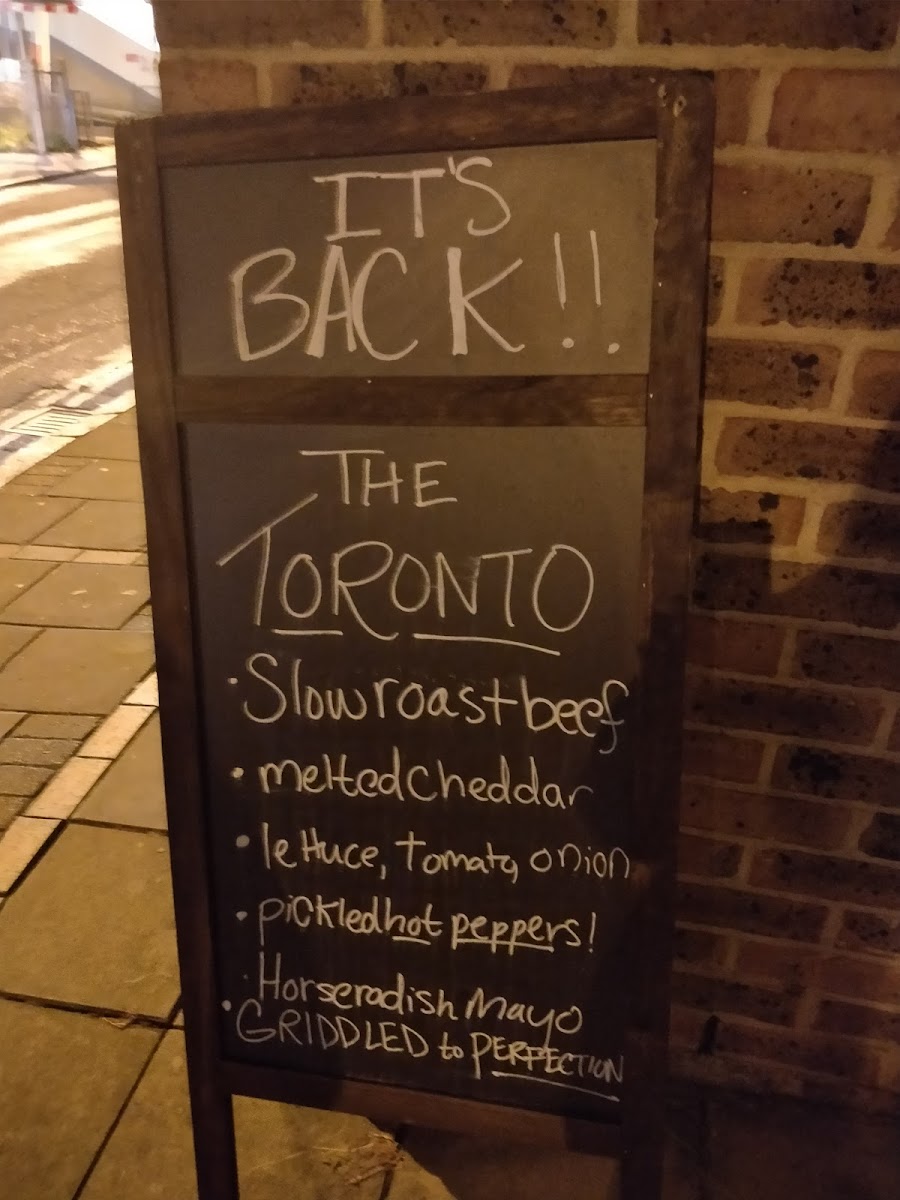 IT'S
BACK!!
THE
TORONTO
· Slow roast beef
· melted cheddar
· lettuce, tomato, onion
· pickled hot peppers!
· Horseradish Mayo
· GRIDDLED to PERFECTION